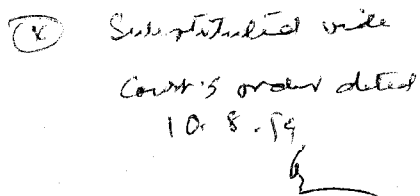 (x) Substituted vide
Court's order dated
10.8.59